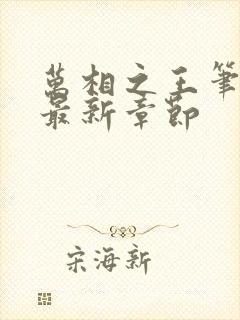 萬相之王筆
最新章節
宋海新